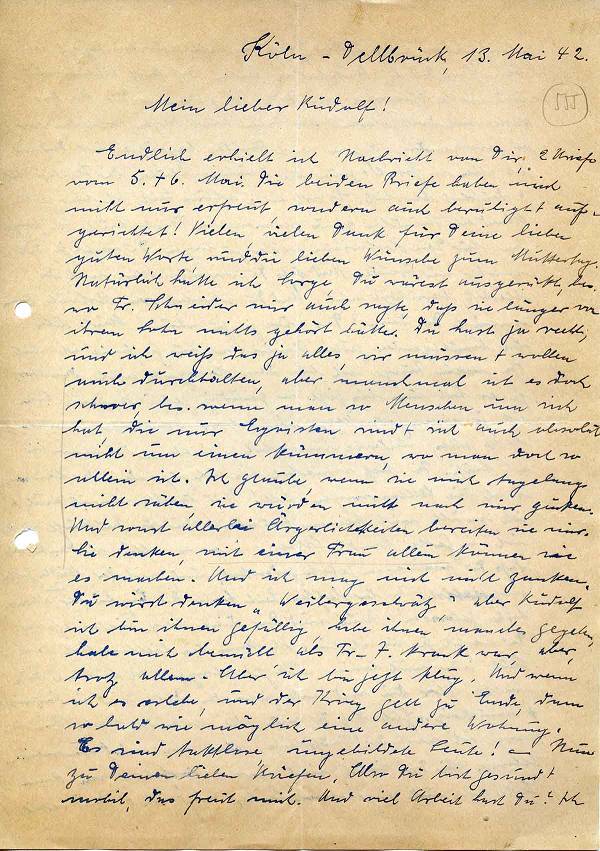 Köln - Dellbrück, 13. Mai 42.
Mein lieber Rudolf!
Endlich erhielt ich Nachricht von Dir, 2 Briefe
vom 5. + 6. Mai. Die beiden Briefe haben mich
nicht nur erfreut, sondern auch beruhigt + auf-
gerichtet! Vielen, vielen Dank für Deine lieben
guten Worte und die lieben Wünsche zum Muttertag.
Natürlich hatte ich Sorge, Du wärest ausgerückt, bes.
wo Fr. Schneider mir auch sagte, daß sie länger von
ihrem Sohn nichts gehört hätte. Du hast ja recht,
und ich weiß das ja alles, wir müssen + wollen
auch durchhalten, aber manchmal ist es doch
schwer, bes. wenn man so Menschen um sich
hat, die nur Egoisten sind + sich auch absolut
nicht um einen kümmern, wo man doch so
allein ist. Ich glaube, wenn sie mich tagelang
nicht sähen, sie würden nicht nach mir gucken.
Und sonst allerlei Ärgerlichkeiten bereiten sie mir.
Sie denken, mit einer Frau allein können sie
es machen. Und ich mag mich nicht zanken.
Du wirst denken „Weibergeschwätz," aber Rudolf
ich bin ihnen gefällig, habe ihnen manches gegeben,
habe mich bemüht als Fr. F. krank war, aber,
trotz allem - Aber ich bin jetzt klug. Und wenn
ich es erlebe, und der Krieg geht zu Ende, dann
so bald wie möglich eine andere Wohnung.
Es sind taktlose, ungebildete Leute! - Nun
zu Deinen lieben Briefen. Also Du bist gesund +
mobil, das freut mich. Und viel Arbeit hast Du? Ich